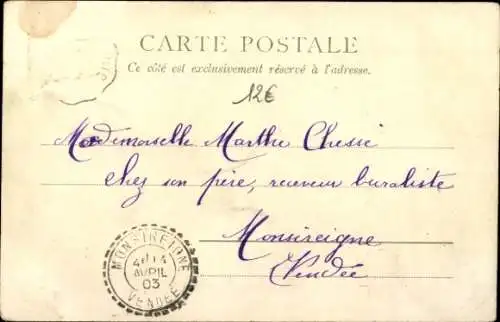 CARTE POSTALE
Ce côté est exclusivement réservé à l'adresse.
12€
Mademoiselle Marthe Chessé
chez son père, receveur buraliste
Monsireigne
Vendée
MONSIREIGNE
4
AVRIL
03
VENDÉE